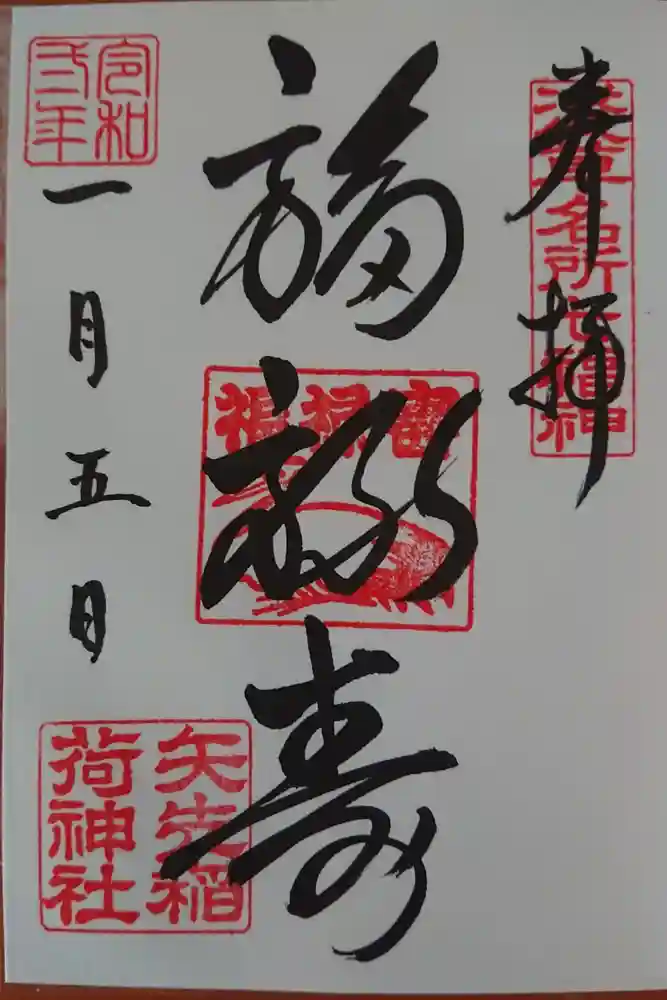 奉拝
浅草名所七福神
福禄寿
福禄壽
令和
弐年
一月五日
矢先稲
荷神社